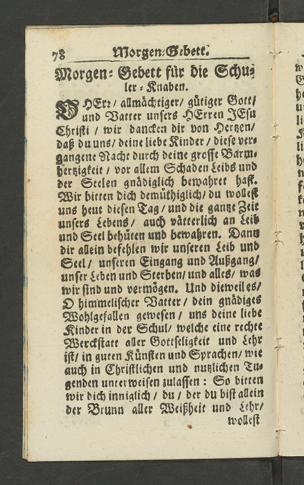 78 Morgen-Gebett.
Morgen-Gebett für die Schu-
ler-Knaben.
O HErr/ allmächtiger/ gütiger Gott/
und Vatter unsers HErren JEsu
Christi/ wir dancken dir von Hertzen/
daß du uns/ deine liebe Kinder/ diese ver-
gangene Nacht durch deine grosse Barm-
hertzigkeit/ vor allem Schaden Leibs und
der Seelen gnädiglich bewahret hast.
Wir bitten dich demüthiglich/ du wollest
uns heut diesen Tag/ und die gantze Zeit
unsers Lebens/ auch vätterlich an Leib
und Seel behüten und bewahren. Dann
dir allein befehlen wir unseren Leib und
Seel/ unseren Eingang und Außgang/
unser Leben und Sterben/ und alles/ was
wir sind und vermögen. Und dieweil es/
O himmelischer Vatter/ dein gnädiges
Wohlgefallen gewesen/ uns deine liebe
Kinder in der Schul/ welche eine rechte
Werckstatt aller Gottseligkeit und Lehr
ist/ in guten Künsten und Sprachen/ wie
auch in Christlichen und nutzlichen Tu-
genden unterweisen zulassen: So bitten
wir dich inniglich/ du/ der du bist allein
der Brunn aller Weißheit und Lehr/
wollest